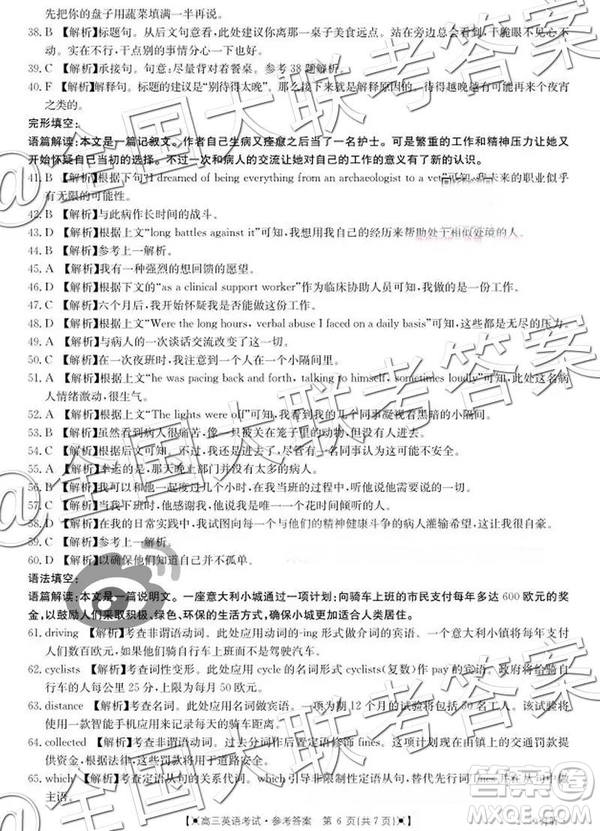 先把你的盘子用蔬菜填满一半再说。
38. B 【解析】标题句。从后文句意看,此处建议如果你离那一桌子美食远点。远处,你不大会吃零食。离
开零食,不在小点心旁边,你不大可能在无意中吃掉。
39. C 【解析】承接句。句意:尽量背对着餐桌。参考38题解析。
40. F 【解析】解释句。标题的建议是“别待得太晚”。下面接着是解释原因的。待得越晚越有可能再来个夜宵
之类的。
完形填空:
语篇解读:本文是一篇记叙文。作者自己生病又痊愈之后当了一名护士。可是繁重的工作和精神压力让她又
开始怀疑自己当初的选择。不过一次和病人的交流让她对自己的工作的意义有了新的认识。
41. B 【解析】根据下句“I dreamed of being everything from an archaeologist to a vet”可知,我未来的职业似乎
有无限的可能性。
42. B 【解析】与此病作长时间的战斗。
43. D 【解析】根据上文“long battles against it”可知,我决定用我的经历来帮助处于相似处境的人。
44. B 【解析】参考上一解析。
45. A 【解析】我有一种强烈的想回馈的愿望。
46. D 【解析】根据上文“as a clinical support worker”可知,作为临床协助人员是我的一份工作。
47. C 【解析】六个月后,我开始怀疑我是否选错了工作。
48. D 【解析】根据上文“Were the long hours, verbal abuse I faced on a daily basis”可知,这些都是不值得的。
49. A 【解析】与病人的一次谈话交流改变了一切。
50. C 【解析】在一次夜班时,我透过窗户看到一个病人在一个小隔间里。
51. A 【解析】根据上文“he was pacing back and forth, talking to himself, sometimes loudly”可知,这个病
人情绪激动,很生气。
52. A 【解析】根据上文“The lights were off”可知,我看到我的几个同事凝视着黑暗的小隔间。
53. B 【解析】虽然看到病人像被关在笼子里的动物一样,但没有人进去。
54. C 【解析】根据下文可知,我确定我是安全的。
55. A 【解析】幸运的是,那天晚上部门里只有很少的病人。
56. B 【解析】我可以和他一起度过几个小时,在他想说话的时候,听他倾诉他的一切。
57. C 【解析】当我下班时,他感谢我,他说我是这段时间里唯一倾听他的人。
58. D 【解析】在我的行医实践中,我给每一个与他们的精神健康斗争的病人灌输希望,我对此很自豪。
59. B 【解析】参考上一解析。
60. D 【解析】让他们知道自己并不孤单。
语法填空:
语篇解读:本文是一篇说明文。一座意大利小城通过一项计划:向骑车上班的市民支付每年多达 600 欧元的奖
金,以鼓励人们采取积极、绿色、环保的生活方式,确保小城更加适合人类居住。
61. driving 【解析】考查非谓语动词。此处应用动词的-ing 形式做介词的宾语。一个意大利小镇将要支付
人们数百欧元,如果他们骑自行车上班而不是驾驶汽车。
62. cyclists 【解析】考查词性变形。此处应用 cycle 的名词形式 cyclists(复数)作 pay 的宾语。政府将给骑
自行车的人每公里 25 分,上限为每月 50 欧元。
63. distance 【解析】考查名词。此处应用名词做宾语。一项为期 12 个月的试验将包括 50 名工人。该项
目将使用智能手机应用程序来记录每天的骑车距离。
64. collected 【解析】考查非谓语动词。过去分词作后置定语修饰 fines。这项计划将由镇上的交通罚款提
供资金。根据法律,这些罚款必须用于改善道路安全和减少污染。
65. which 【解析】考查定语从句的关系代词。which 引导非限制性定语从句,which 在定语从句中做
主语。
高三英语考试·参考答案 第 6 页(共 7 页)
@全国大联考答案